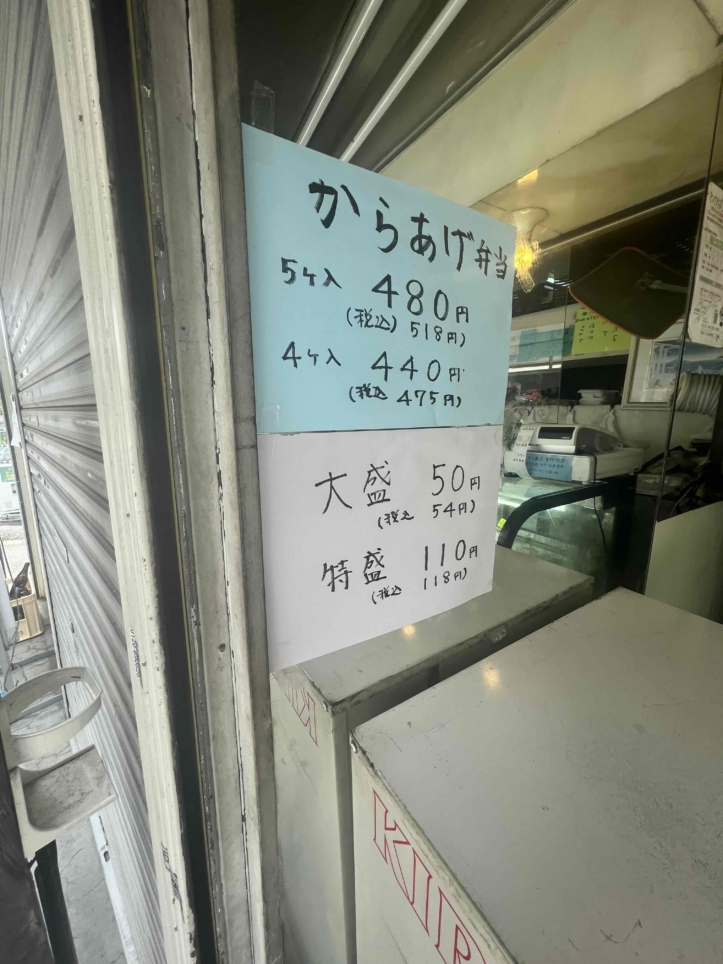 からあげ弁当
5ヶ入 480円
(税込) 518円)
4ヶ入 440円
(税込 475円)
大盛 50円
(税込 54円)
特盛 110円
(税込 118円)
KIR